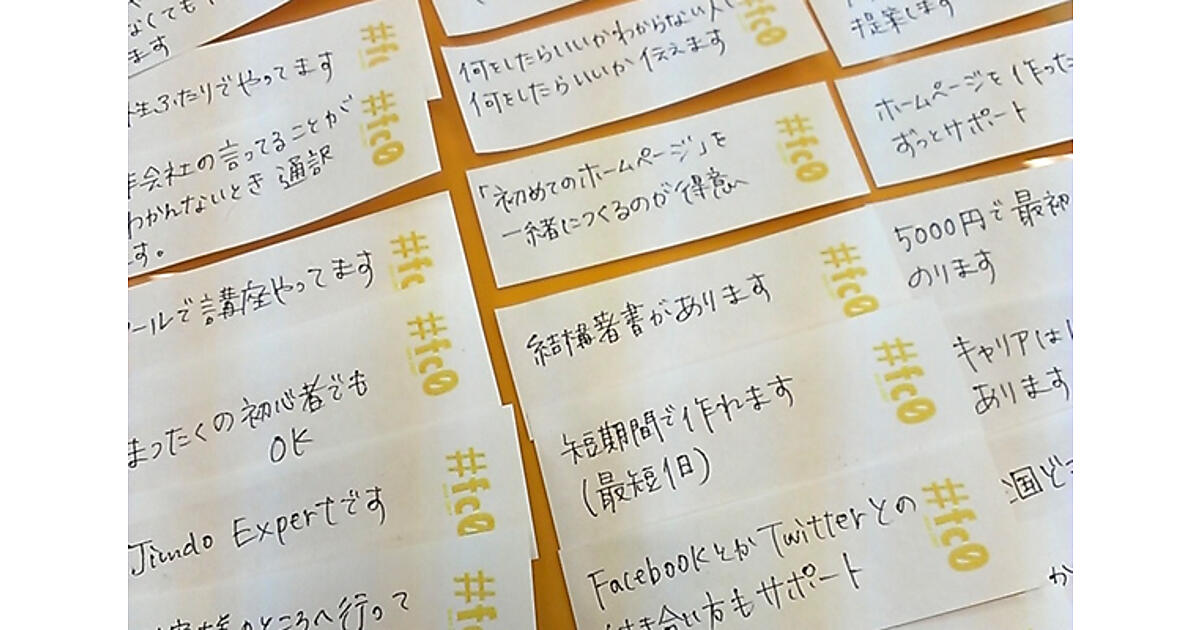 なくても
ます
ふたりでやってます
#fc
会社の言ってることが
わかんないとき 通訳
ます。
#fc0
ールで講座やってます
#fc
まったくの初心者でも
OK
#fc0
Jimdo Expertです
#fc0
ところへ行って
#fc
何をしたらいいかわからない人に
何をしたらいいか伝えます
#fc0
「初めてのホームページ」を
一緒につくるのが得意
#fc0
結構著書があります
#fc0
短期間で作れます
(最短1日)
#fc0
FacebookとかTwitterとの
付き合い方もサポート
#fc0
提案します
ホームページを作った
ずっとサポート
5000円で最初
のります
キャリアは
あります
国ど
か